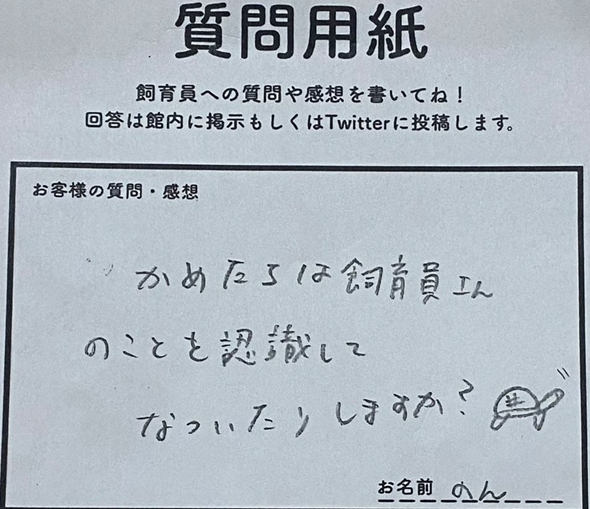 質問用紙
飼育員への質問や感想を書いてね！
回答は館内に掲示もしくはTwitterに投稿します。
お客様の質問・感想
かめたちは飼育員さん
のことを認識して
なついたりしますか？
お名前 のん